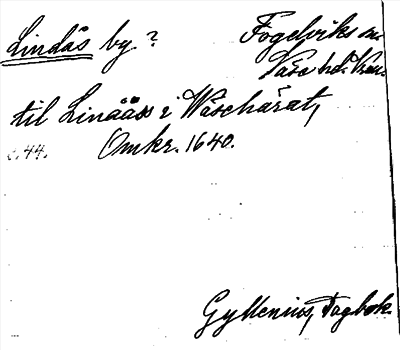 Lindås by? Fögelviks sn.
Väse hd. Vrml.
til Linååss i Wäsehärat,
s. 44. Omkr. 1640.
Gyllenius, Dagbok.